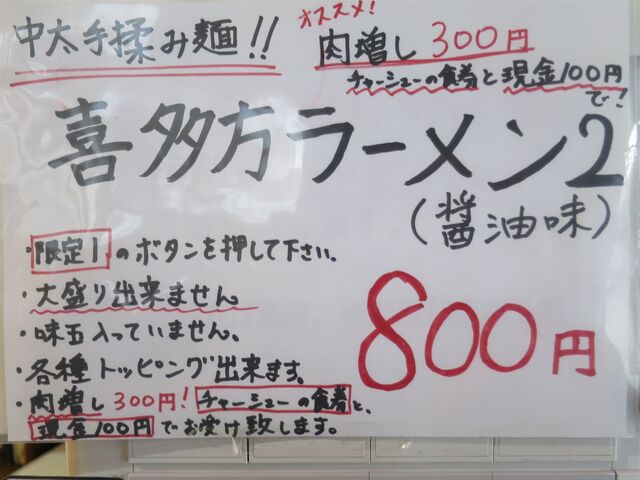 中太手揉み麺!!
オススメ!
肉増し 300円
チャーシューの食券と現金100円
で!
喜多方ラーメン2
(醤油味)
・限定1のボタンを押して下さい。
・大盛り出来ません
・味玉入っていません、
・各種トッピング出来ます。
・肉増し300円!チャーシューの食券と、
現金100円でお受け致します。
800円